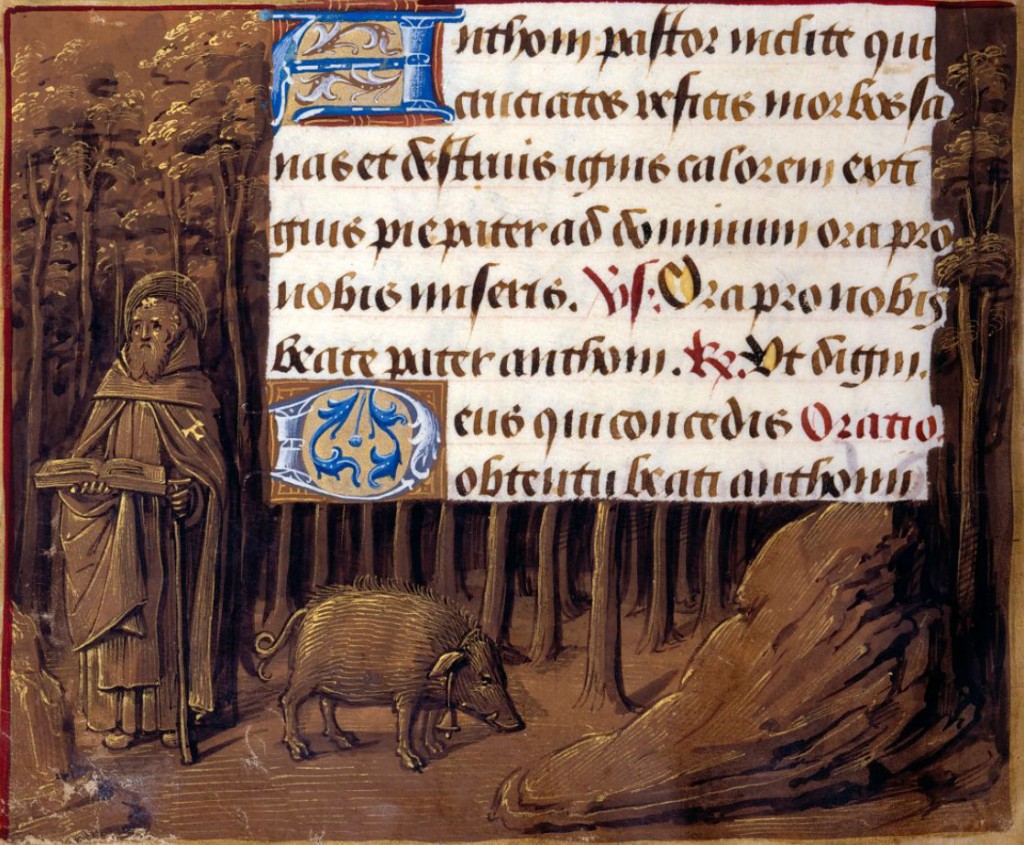 Anthoni pastor inclite qui
cruciatos reficis morbos sa
nas et destruis ignis calorem exti
guis pie pater ad dominum ora pro
nobis miseris. Vs. Ora pro nobis
beate pater anthoni. R. Ut digni.
Deus qui concedis Oratio.
obtentu beati anthonii